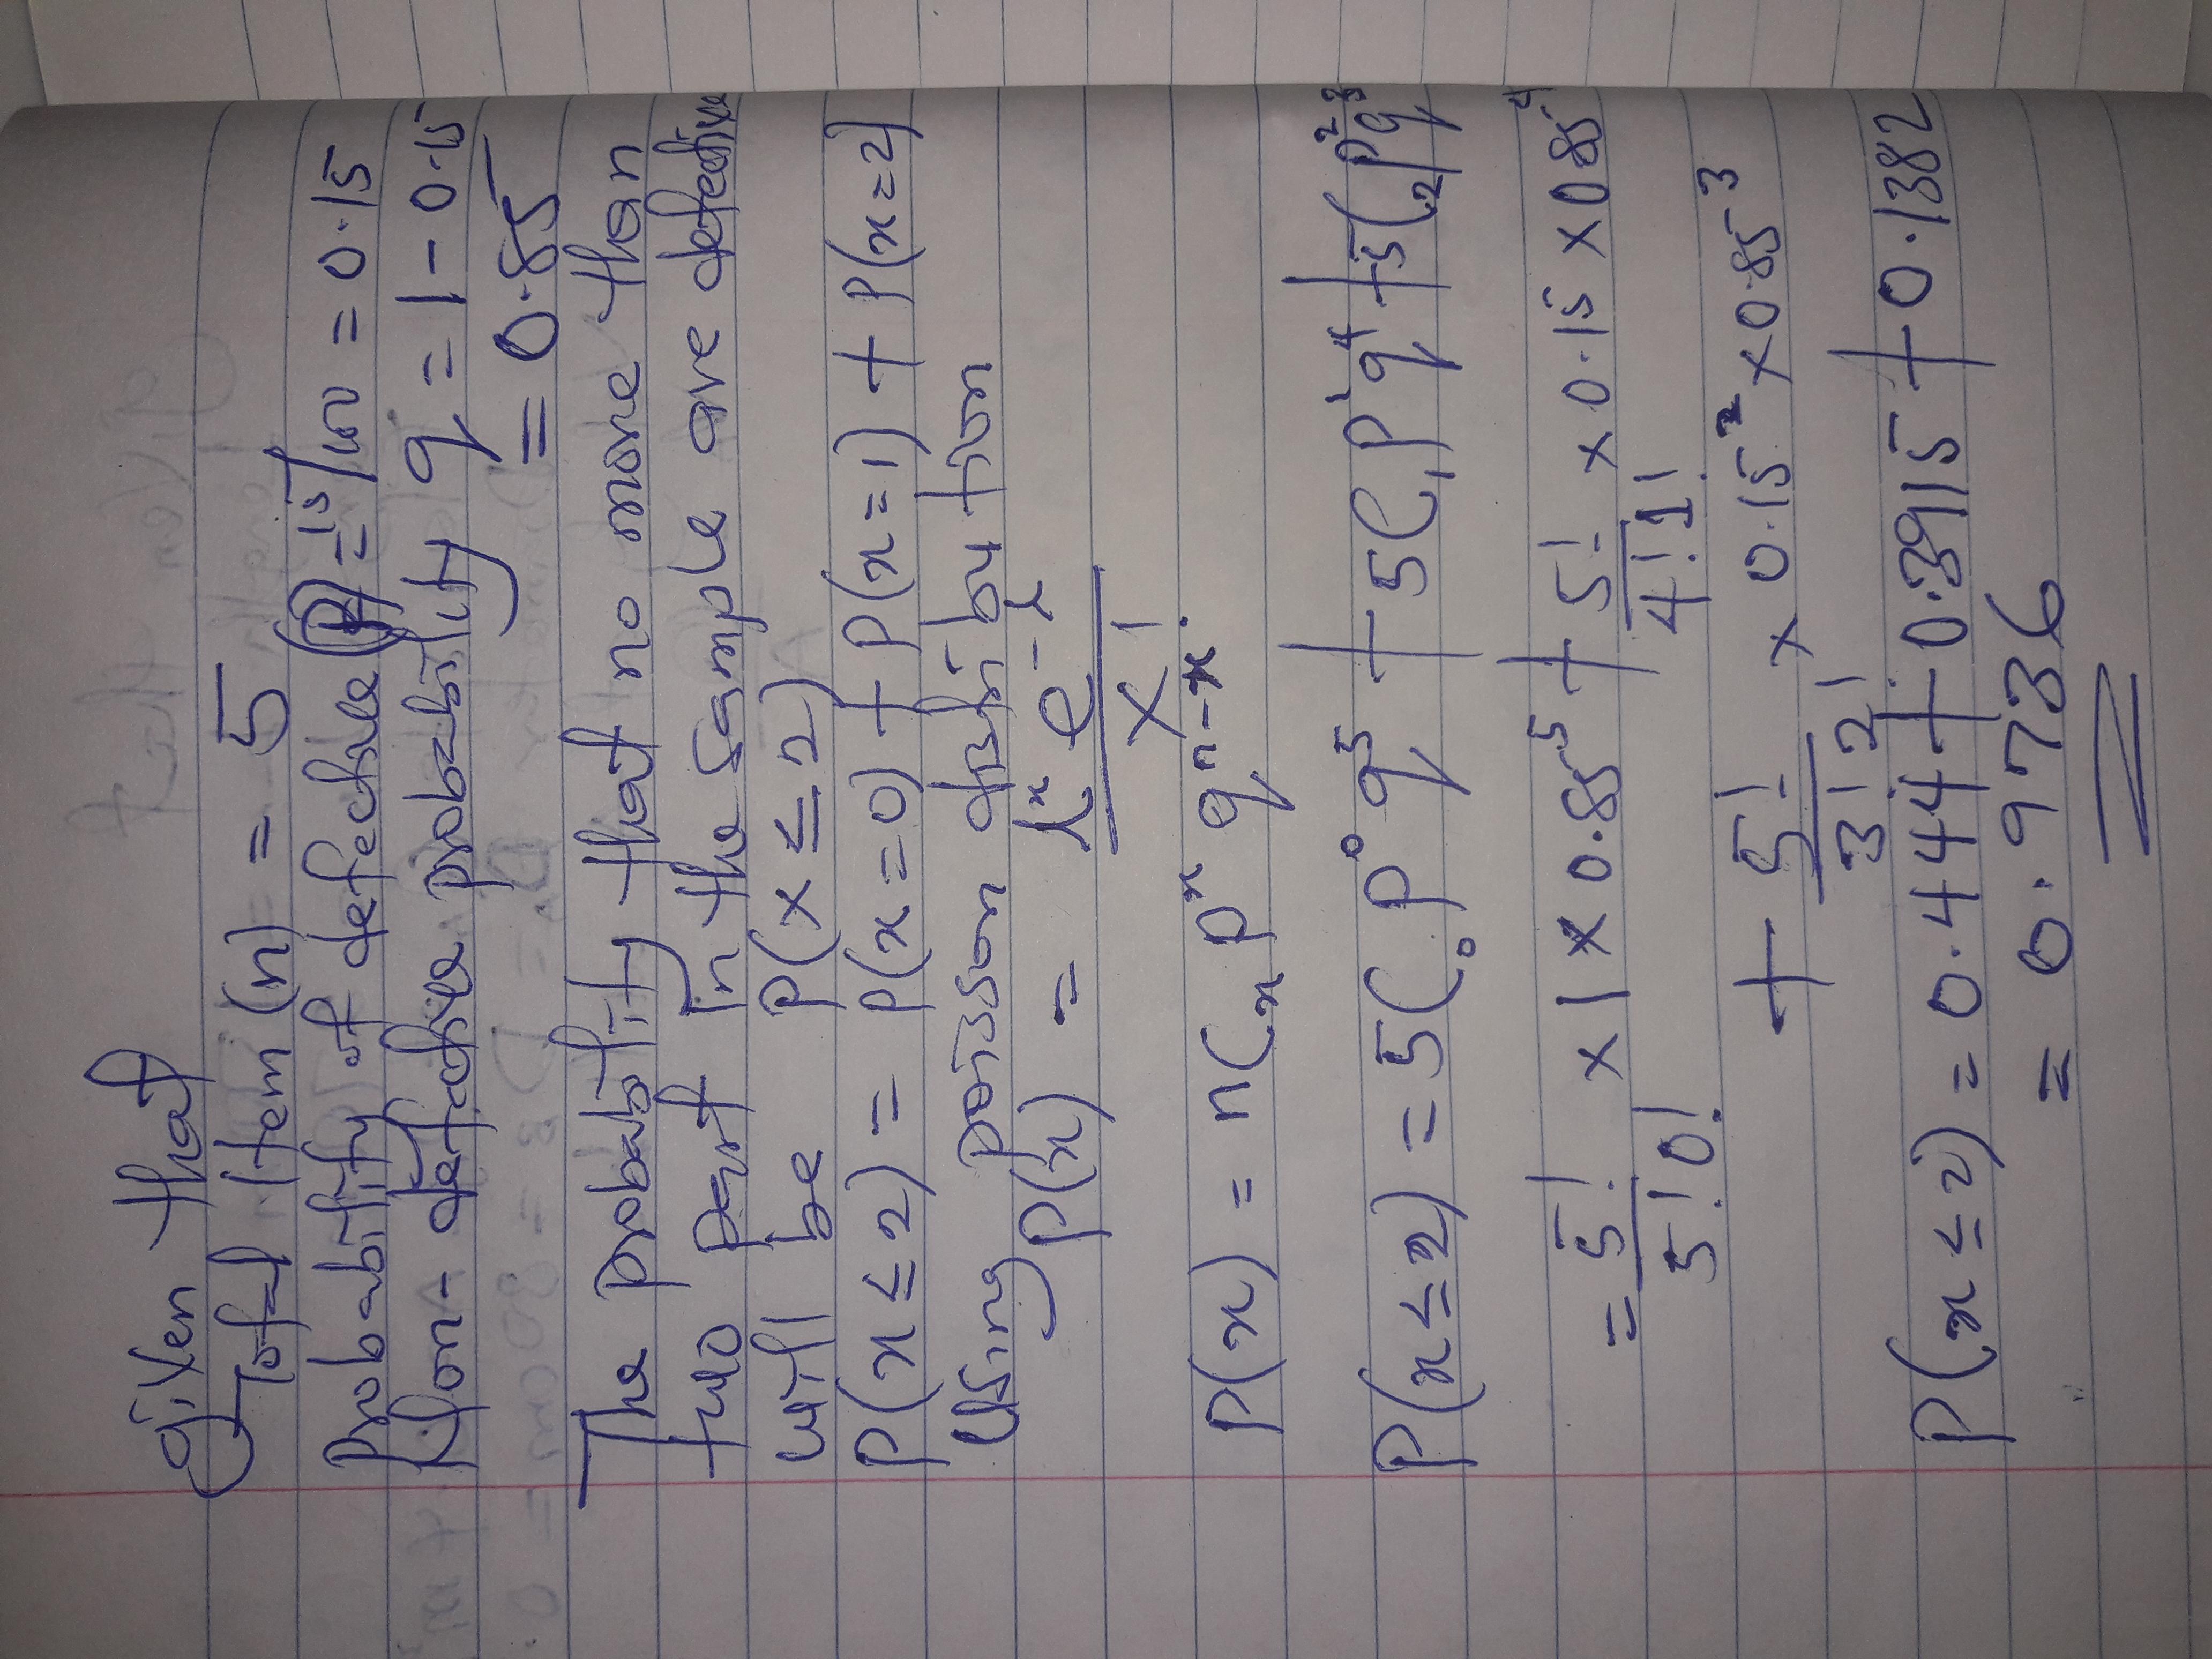 Given that
Total item (n) = 5
Probability of defective (P) = 15/100 = 0.15
Non-defective probability q = 1 - 0.15
= 0.85
The probability that no more than
two part in the sample are defective
will be P(x ≤ 2)
P(x ≤ 2) = P(x=0) + P(x=1) + P(x=2)
Using poisson distribution
P(x) = λˣ e^-λ / x!
P(x) = nCₓ pˣ qⁿ⁻ˣ
P(x ≤ 2) = 5C₀ p⁰ q⁵ + 5C₁ p¹ q⁴ + 5C₂ p² q³
= 5!/5!0! × 1 × 0.85⁵ + 5!/4!1! × 0.15 × 0.85⁴
+ 5!/3!2! × 0.15² × 0.85³
P(x ≤ 2) = 0.444 + 0.3915 + 0.1382
= 0.9736